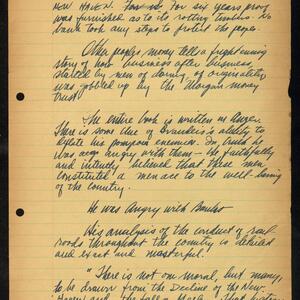 NEW HAVEN. For six years prov
was furnished as to its rotting timbers. No
bank took any steps to protect the people.
Other peoples money tells a frightening
story of how business after business,
started by men of daring & originality
was gobbled up by the Morgan money
trust
The entire book is written in anger.
There is some use of Brandeis's ability to
his pompous enemies. In truth he
was angry with them - he faithfully
and intently believed that these men
constituted a menace to the well-being
of the country.
He was Angry with Banks
His analysis of the conduct of rail
roads throughout the country is detailed
and exact and masterful.
"There is not one moral, but many,
to be drawn from the Decline of the New
Haven and the